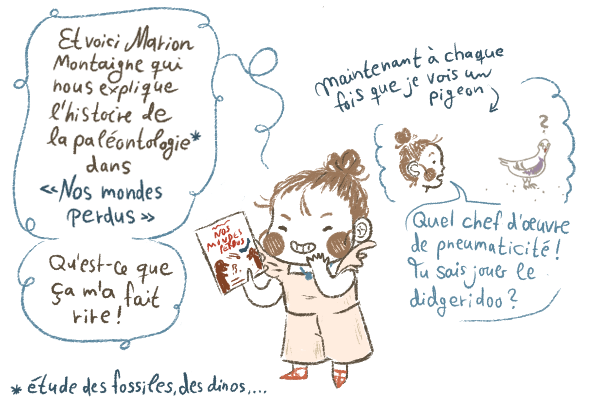 Et voici Marion
Montaigne qui
nous explique
l'histoire de
la paléontologie*
dans
«Nos mondes
perdus»
Qu'est-ce que
ça m'a fait
rire!
* étude des fossiles, des dinos,...
NOS
MONDES
PERDUS
maintenant à chaque
fois que je vois un
pigeon
?
Quel chef d'œuvre
de pneumaticité!
Tu sais jouer le
didgeridoo?